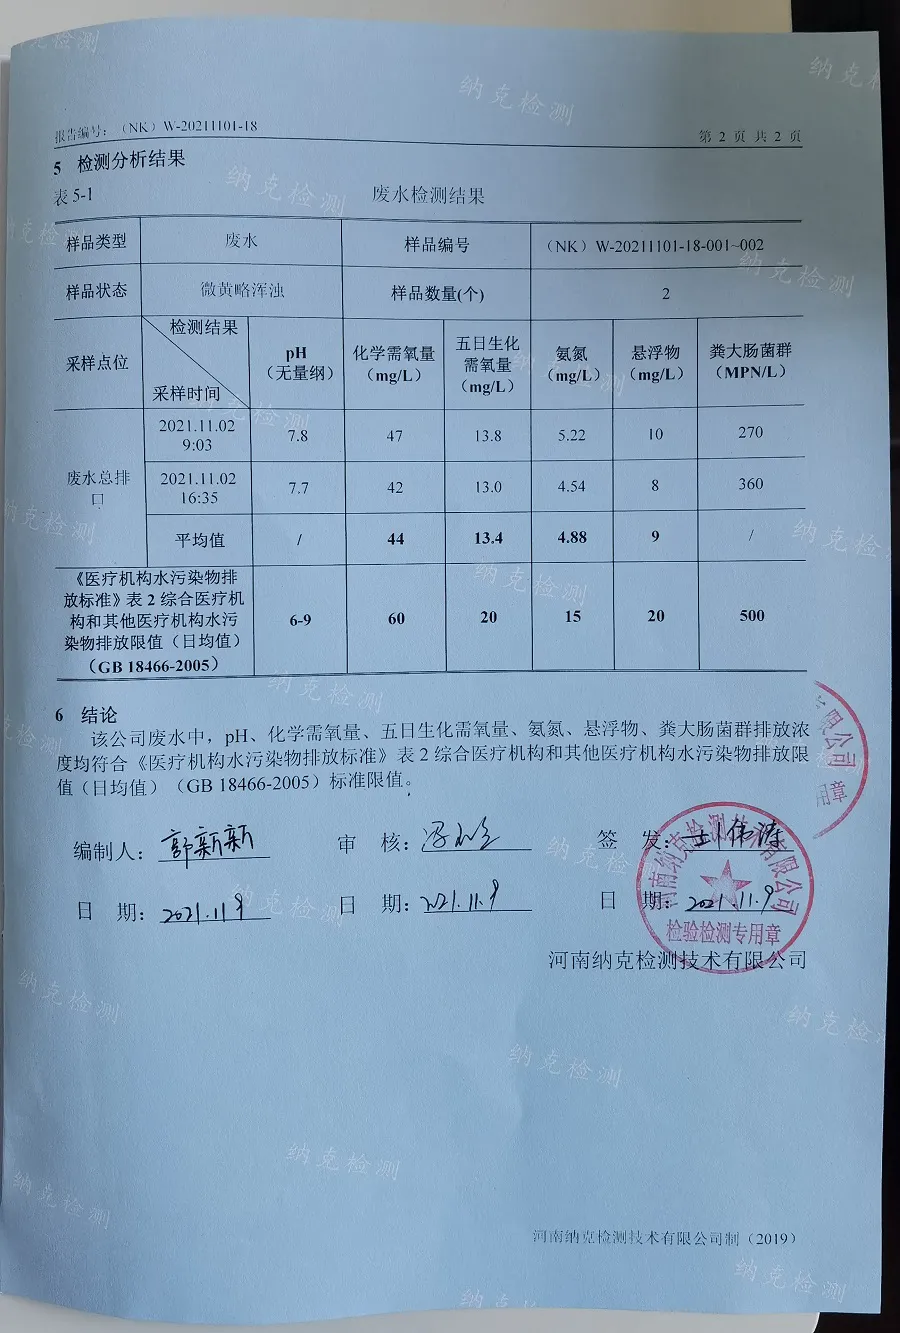 报告编号：（NK）W-20211101-18
第 2 页 共 2 页
5 检测分析结果
表 5-1
废水检测结果
样品类型
废水
样品编号
（NK）W-20211101-18-001~002
样品状态
微黄略浑浊
样品数量(个)
2
采样点位
检测结果
采样时间
pH
（无量纲）
化学需氧量
（mg/L）
五日生化
需氧量
（mg/L）
氨氮
（mg/L）
悬浮物
（mg/L）
粪大肠菌群
（MPN/L）
废水总排
口
2021.11.02
9:03
7.8
47
13.8
5.22
10
270
2021.11.02
16:35
7.7
42
13.0
4.54
8
360
平均值
/
44
13.4
4.88
9
/
《医疗机构水污染物排
放标准》表 2 综合医疗机
构和其他医疗机构水污
染物排放限值（日均值）
（GB 18466-2005）
6-9
60
20
15
20
500
6 结论
该公司废水中，pH、化学需氧量、五日生化需氧量、氨氮、悬浮物、粪大肠菌群排放浓
度均符合《医疗机构水污染物排放标准》表 2 综合医疗机构和其他医疗机构水污染物排放限
值（日均值）（GB 18466-2005）标准限值。
编制人：郭新新
审 核：
签 发：
日 期：2021.11.9
日 期：2021.11.9
日 期：2021.11.9
河南纳克检测技术有限公司
检验检测专用章
河南纳克检测技术有限公司
有限公司
用章
河南纳克检测技术有限公司制（2019）
纳克检测